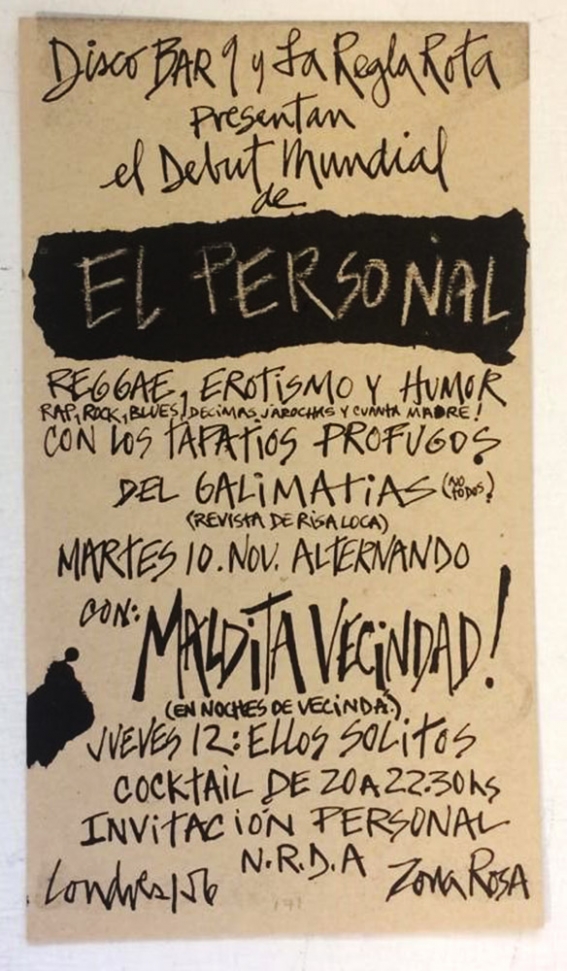 Disco BAR 9 y La Regla Rota
presentan
el Debut Mundial
de
EL PERSONAL
REGGAE, EROTISMO Y HUMOR
RAP, ROCK, BLUES, DECIMAS JAROCHAS Y CUANTA MADRE!
CON LOS TAPATIOS PROFUGOS
DEL GALIMATIAS (NO TODOS)
(REVISTA DE RISA LOCA)
MARTES 10. NOV. ALTERNANDO
CON: MALDITA VECINDAD!
(EN NOCHES DE VECINDÁ.)
JUEVES 12: ELLOS SOLITOS
COCKTAIL DE 20 A 22.30 hs
INVITACIÓN PERSONAL
N.R.D.A
Londres 156 Zona ROSA